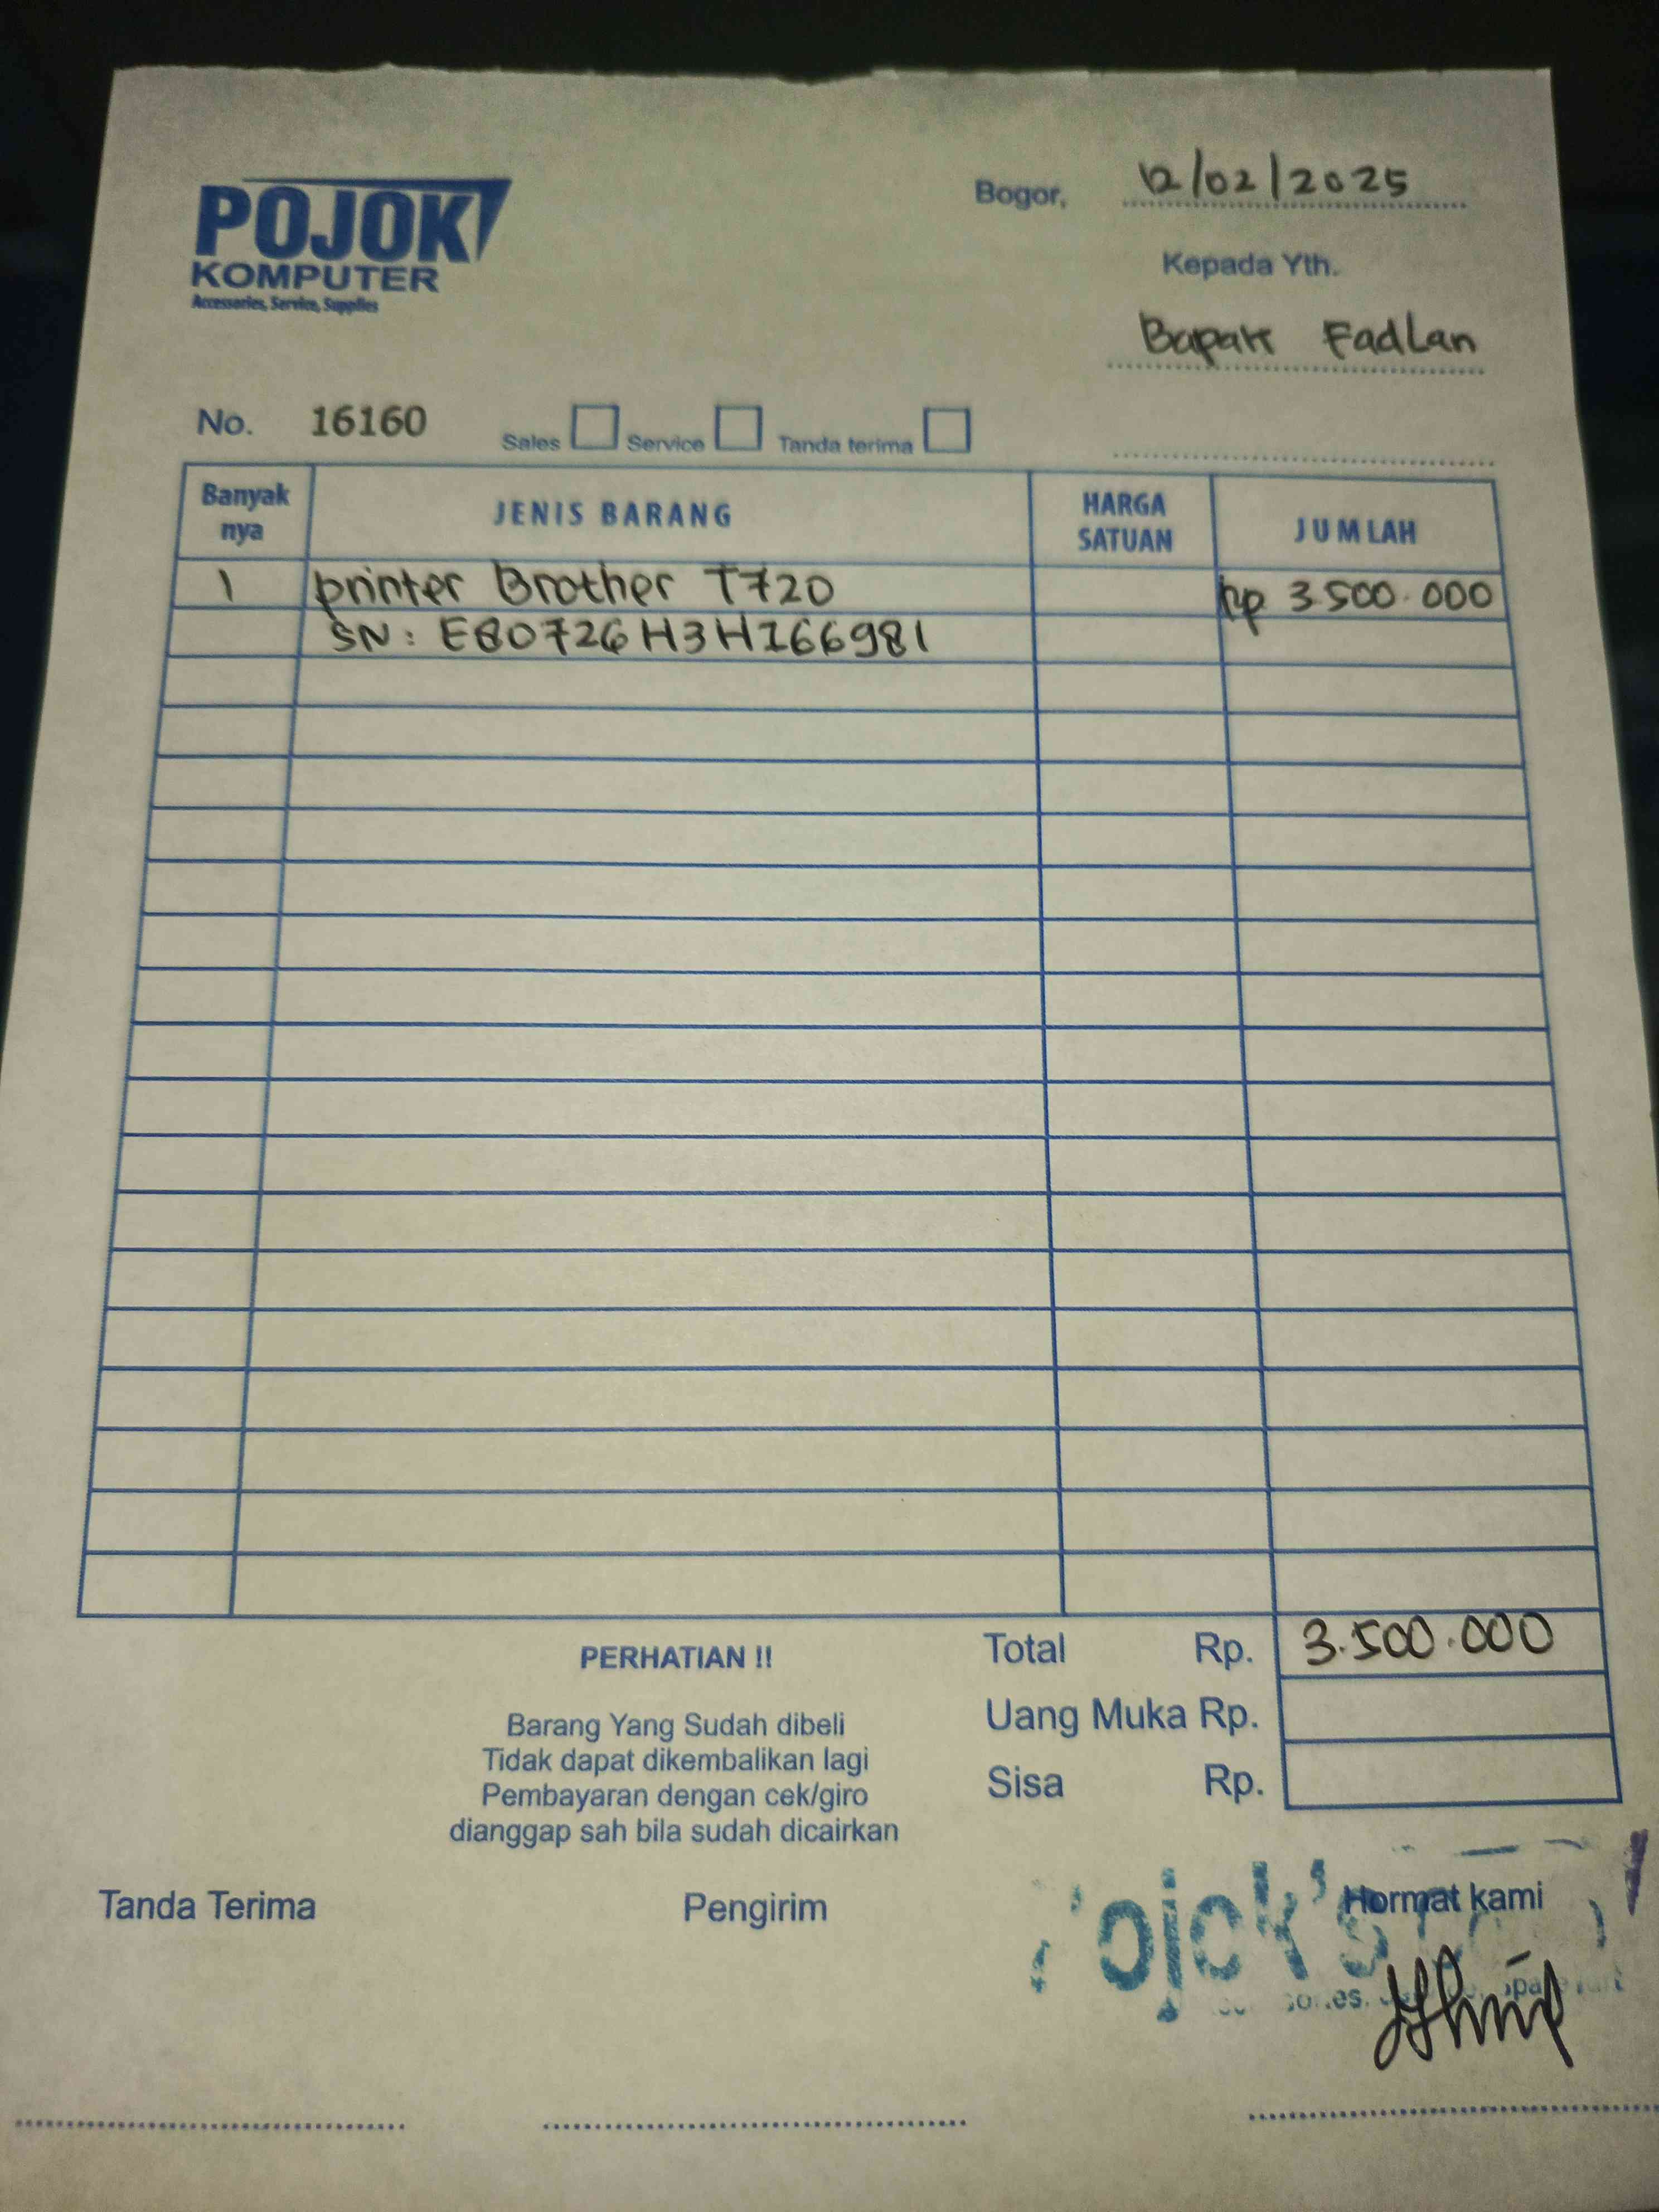 POJOK
KOMPUTER
Accessories, Service, Supplies
Bogor, 12/02/2025
Kepada Yth.
Bapak Fadlan
No. 16160 Sales Service Tanda terima
Banyak nya JENIS BARANG HARGA SATUAN JUMLAH
1 printer Brother T720 Rp 3.500.000
SN: E80726H3H166981
Total Rp. 3.500.000
Uang Muka Rp.
Sisa Rp.
PERHATIAN !!
Barang Yang Sudah dibeli
Tidak dapat dikembalikan lagi
Pembayaran dengan cek/giro
dianggap sah bila sudah dicairkan
Tanda Terima Pengirim Hormat kami